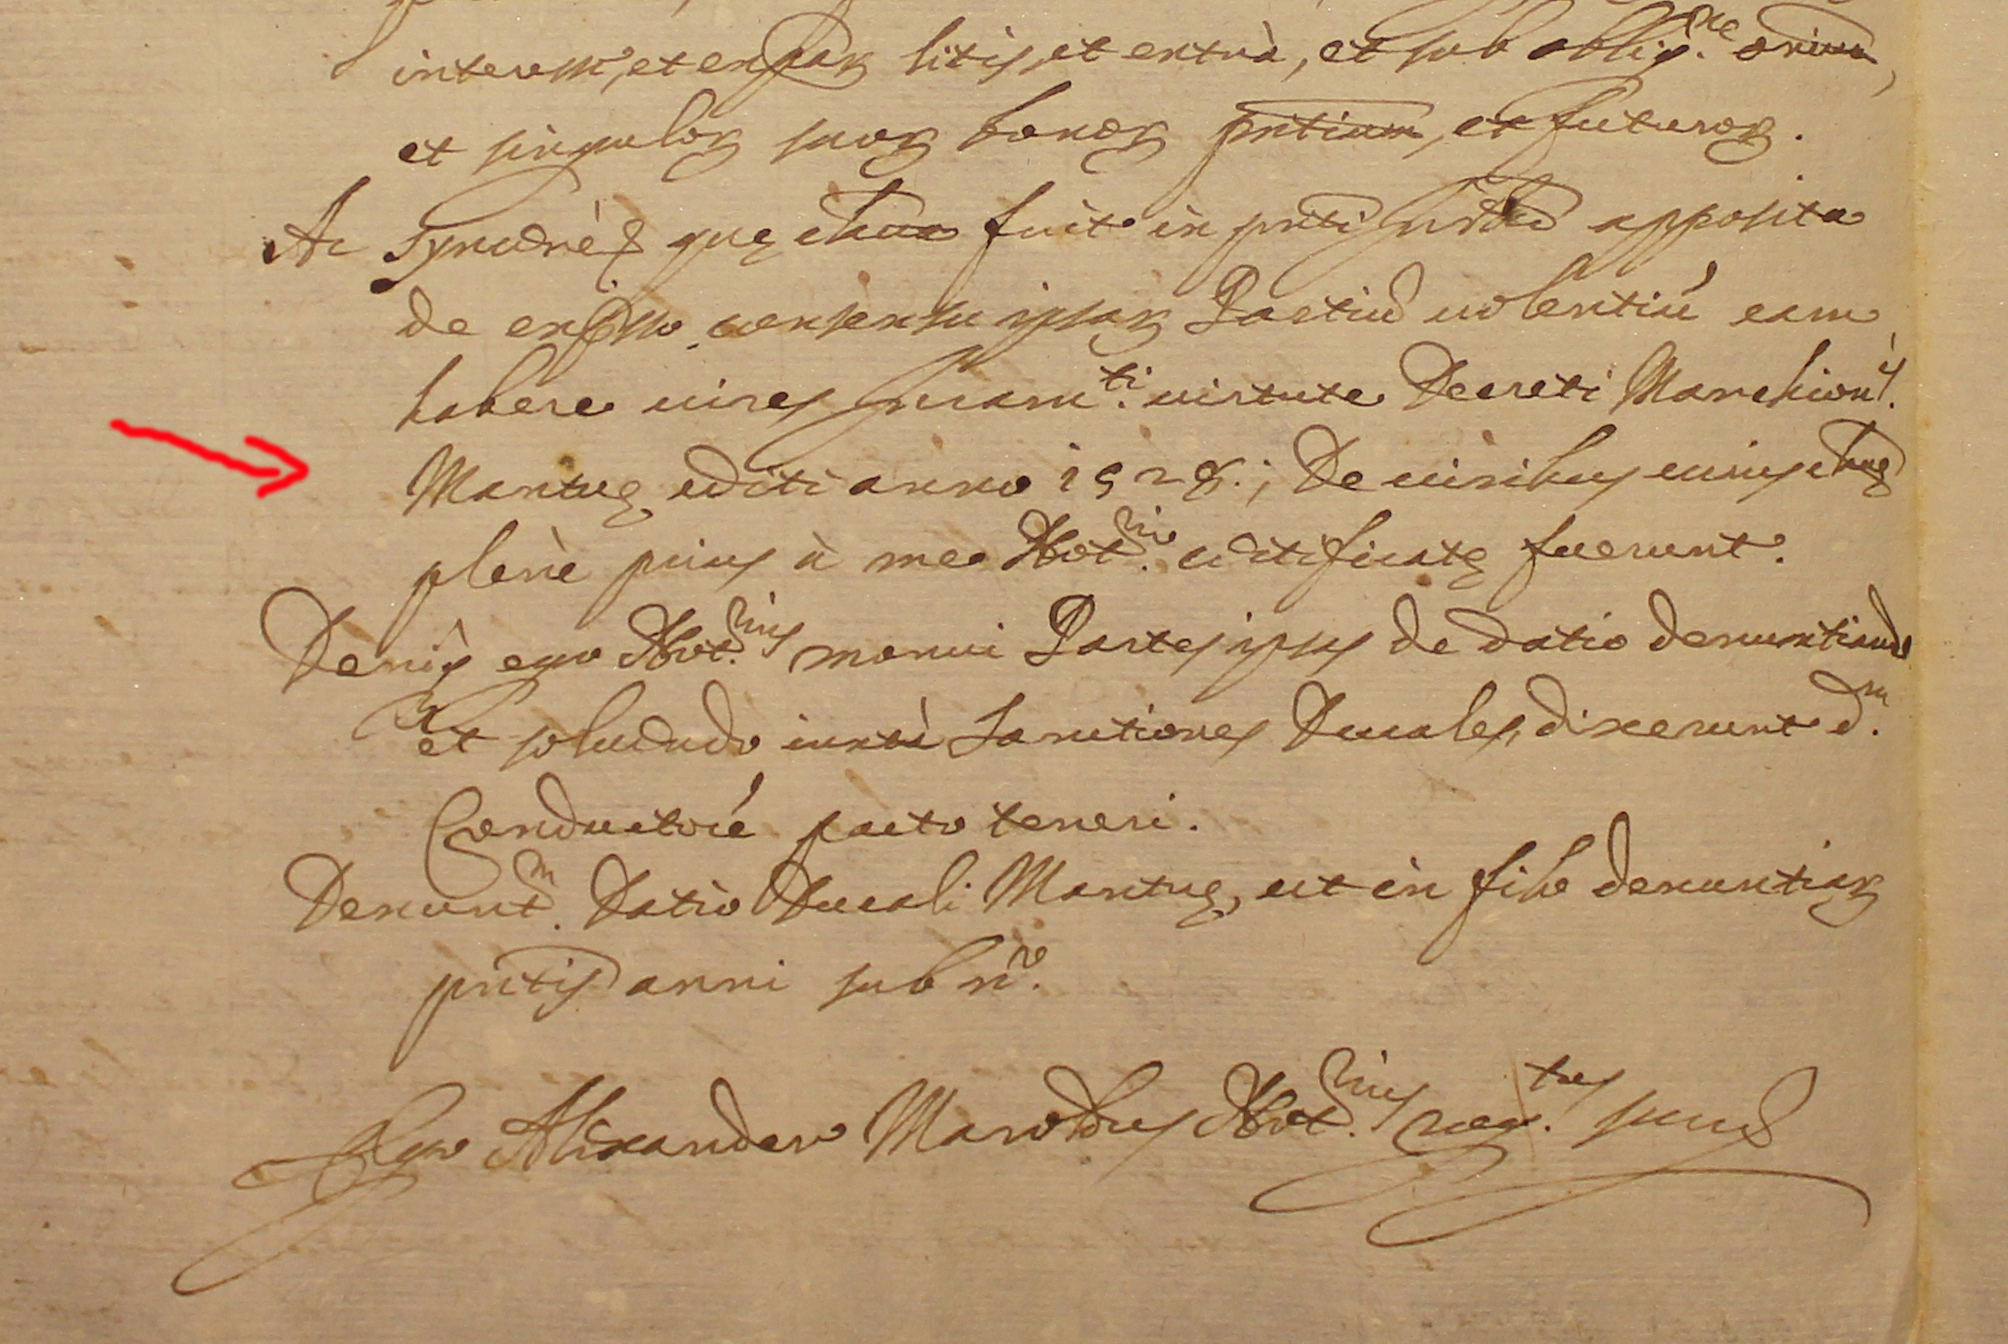 interesse, et expensar litis, et extrà, et sub oblig.ne omium,
et singulor suor bonor pntium, et futuror.
Ac Syncerè que etiam fuit in pnti apposita
de expsso consensu ipsar Partiu uolentiu eam
habere uires Iuram.ti uirtute Decreti Marchion.
Mantue editi anno 1528.; De uiribus cuius etiam
plenè prius à me Not.rio certificate fuerunt.
Deniq ego Not.rius monui Partes ipsas de datio denuntiando
et soluendo iuxtà Sanctiones Ducales, dixerunt d.m
Conductoré pacto teneri.
Denunt.m Datio Ducali Mantue, ut in filo denuntiar
pntis anni sub n.o
Ego Alexander Not.rius rog.tus